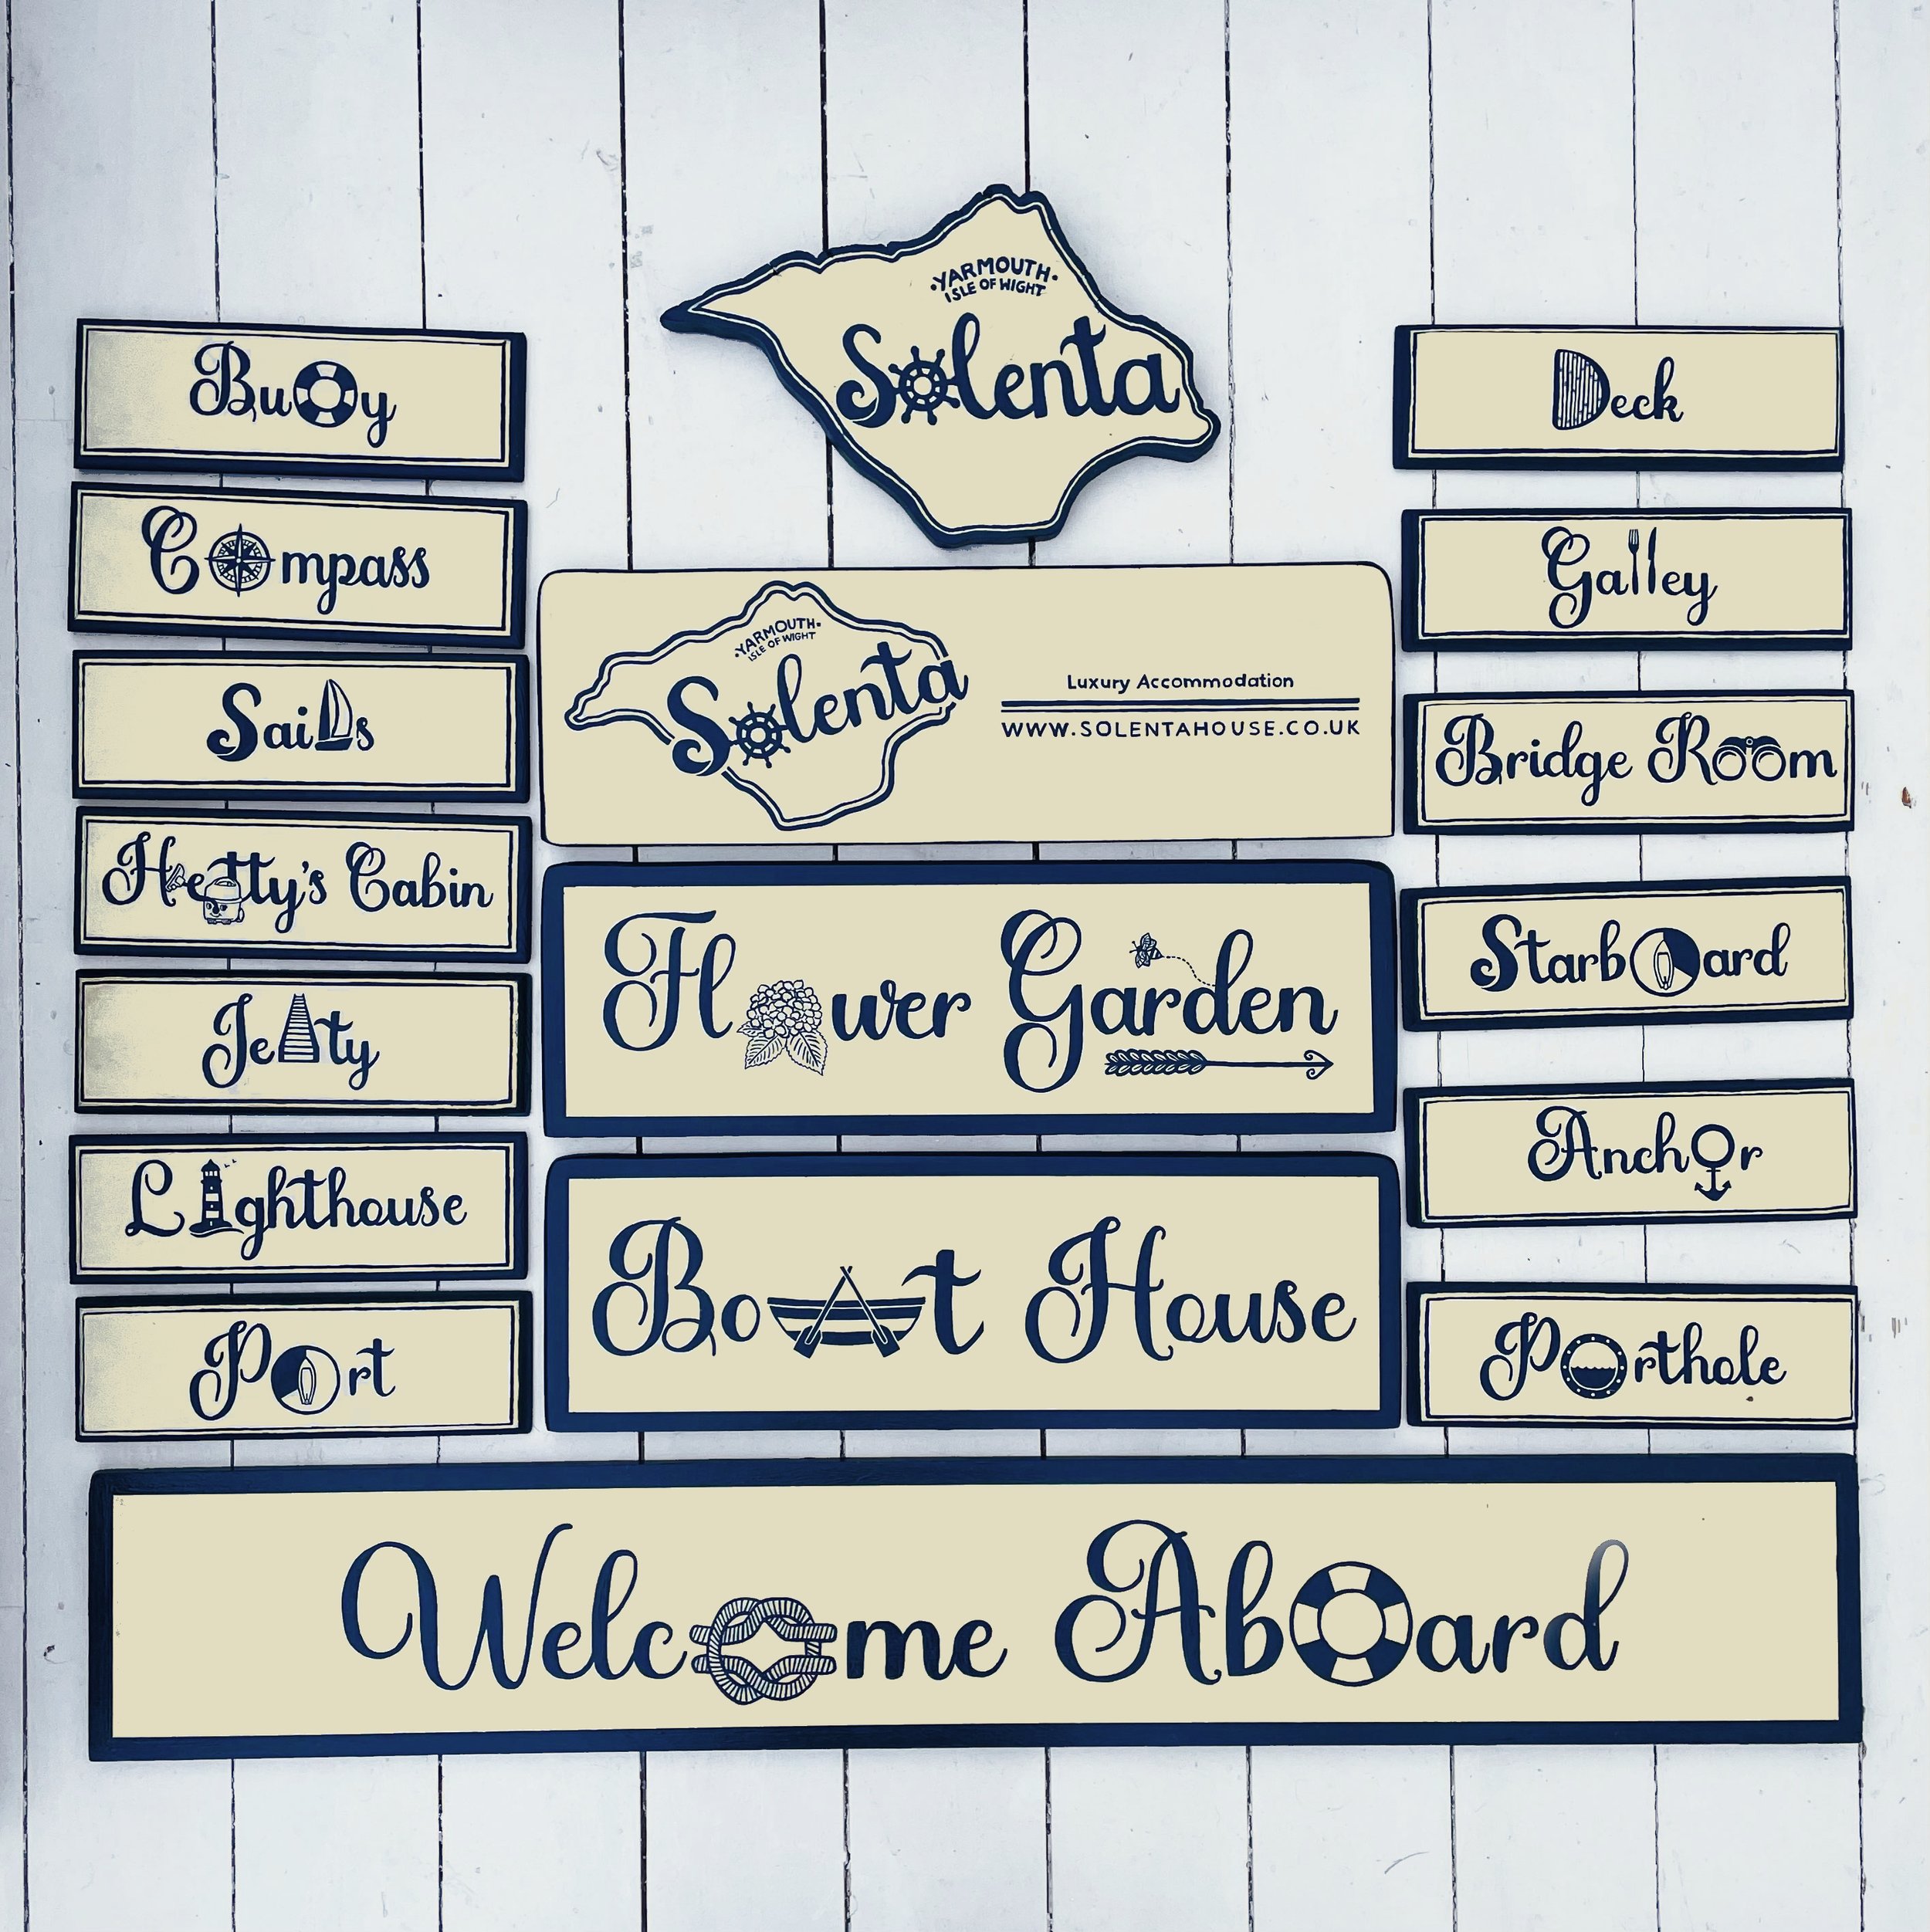 ·YARMOUTH·
ISLE OF WIGHT
Solenta
Buoy
Compass
Sails
Hetty's Cabin
Jetty
Lighthouse
Port
·YARMOUTH·
ISLE OF WIGHT
Solenta
Luxury Accommodation
WWW.SOLENTAHOUSE.CO.UK
Flower Garden
Boat House
Deck
Galley
Bridge Room
Starboard
Anchor
Porthole
Welcome Aboard